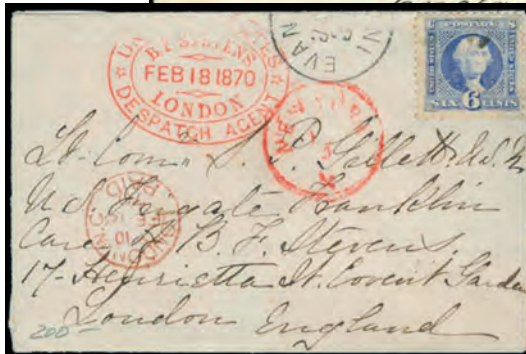 UNITED STATES
B.F. STEVENS
FEB 18 1870
LONDON
DESPATCH AGENT
EVAN
NEW
PAID
LONDON
U.S. POSTAGE
SIX 6 CENTS
Lt. Com. S. P. Gillett U.S.N.
U.S. Frigate Franklin
Care of B. F. Stevens.
17- Henrietta St. Covent Garden
London England
200-